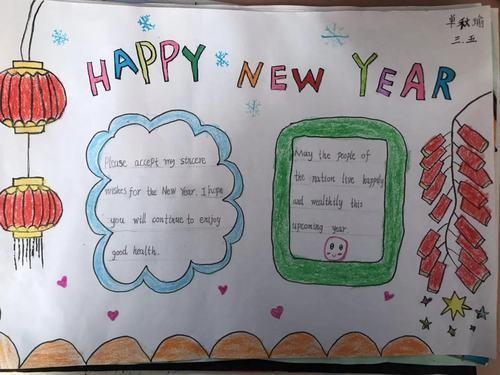 单秋瑜
三.五
HAPPY NEW YEAR
Please accept my sincere
wishes for the New Year. I hope
you will continue to enjoy
good health.
May the people of
the nation live happily
and wealthily this
upcoming year.